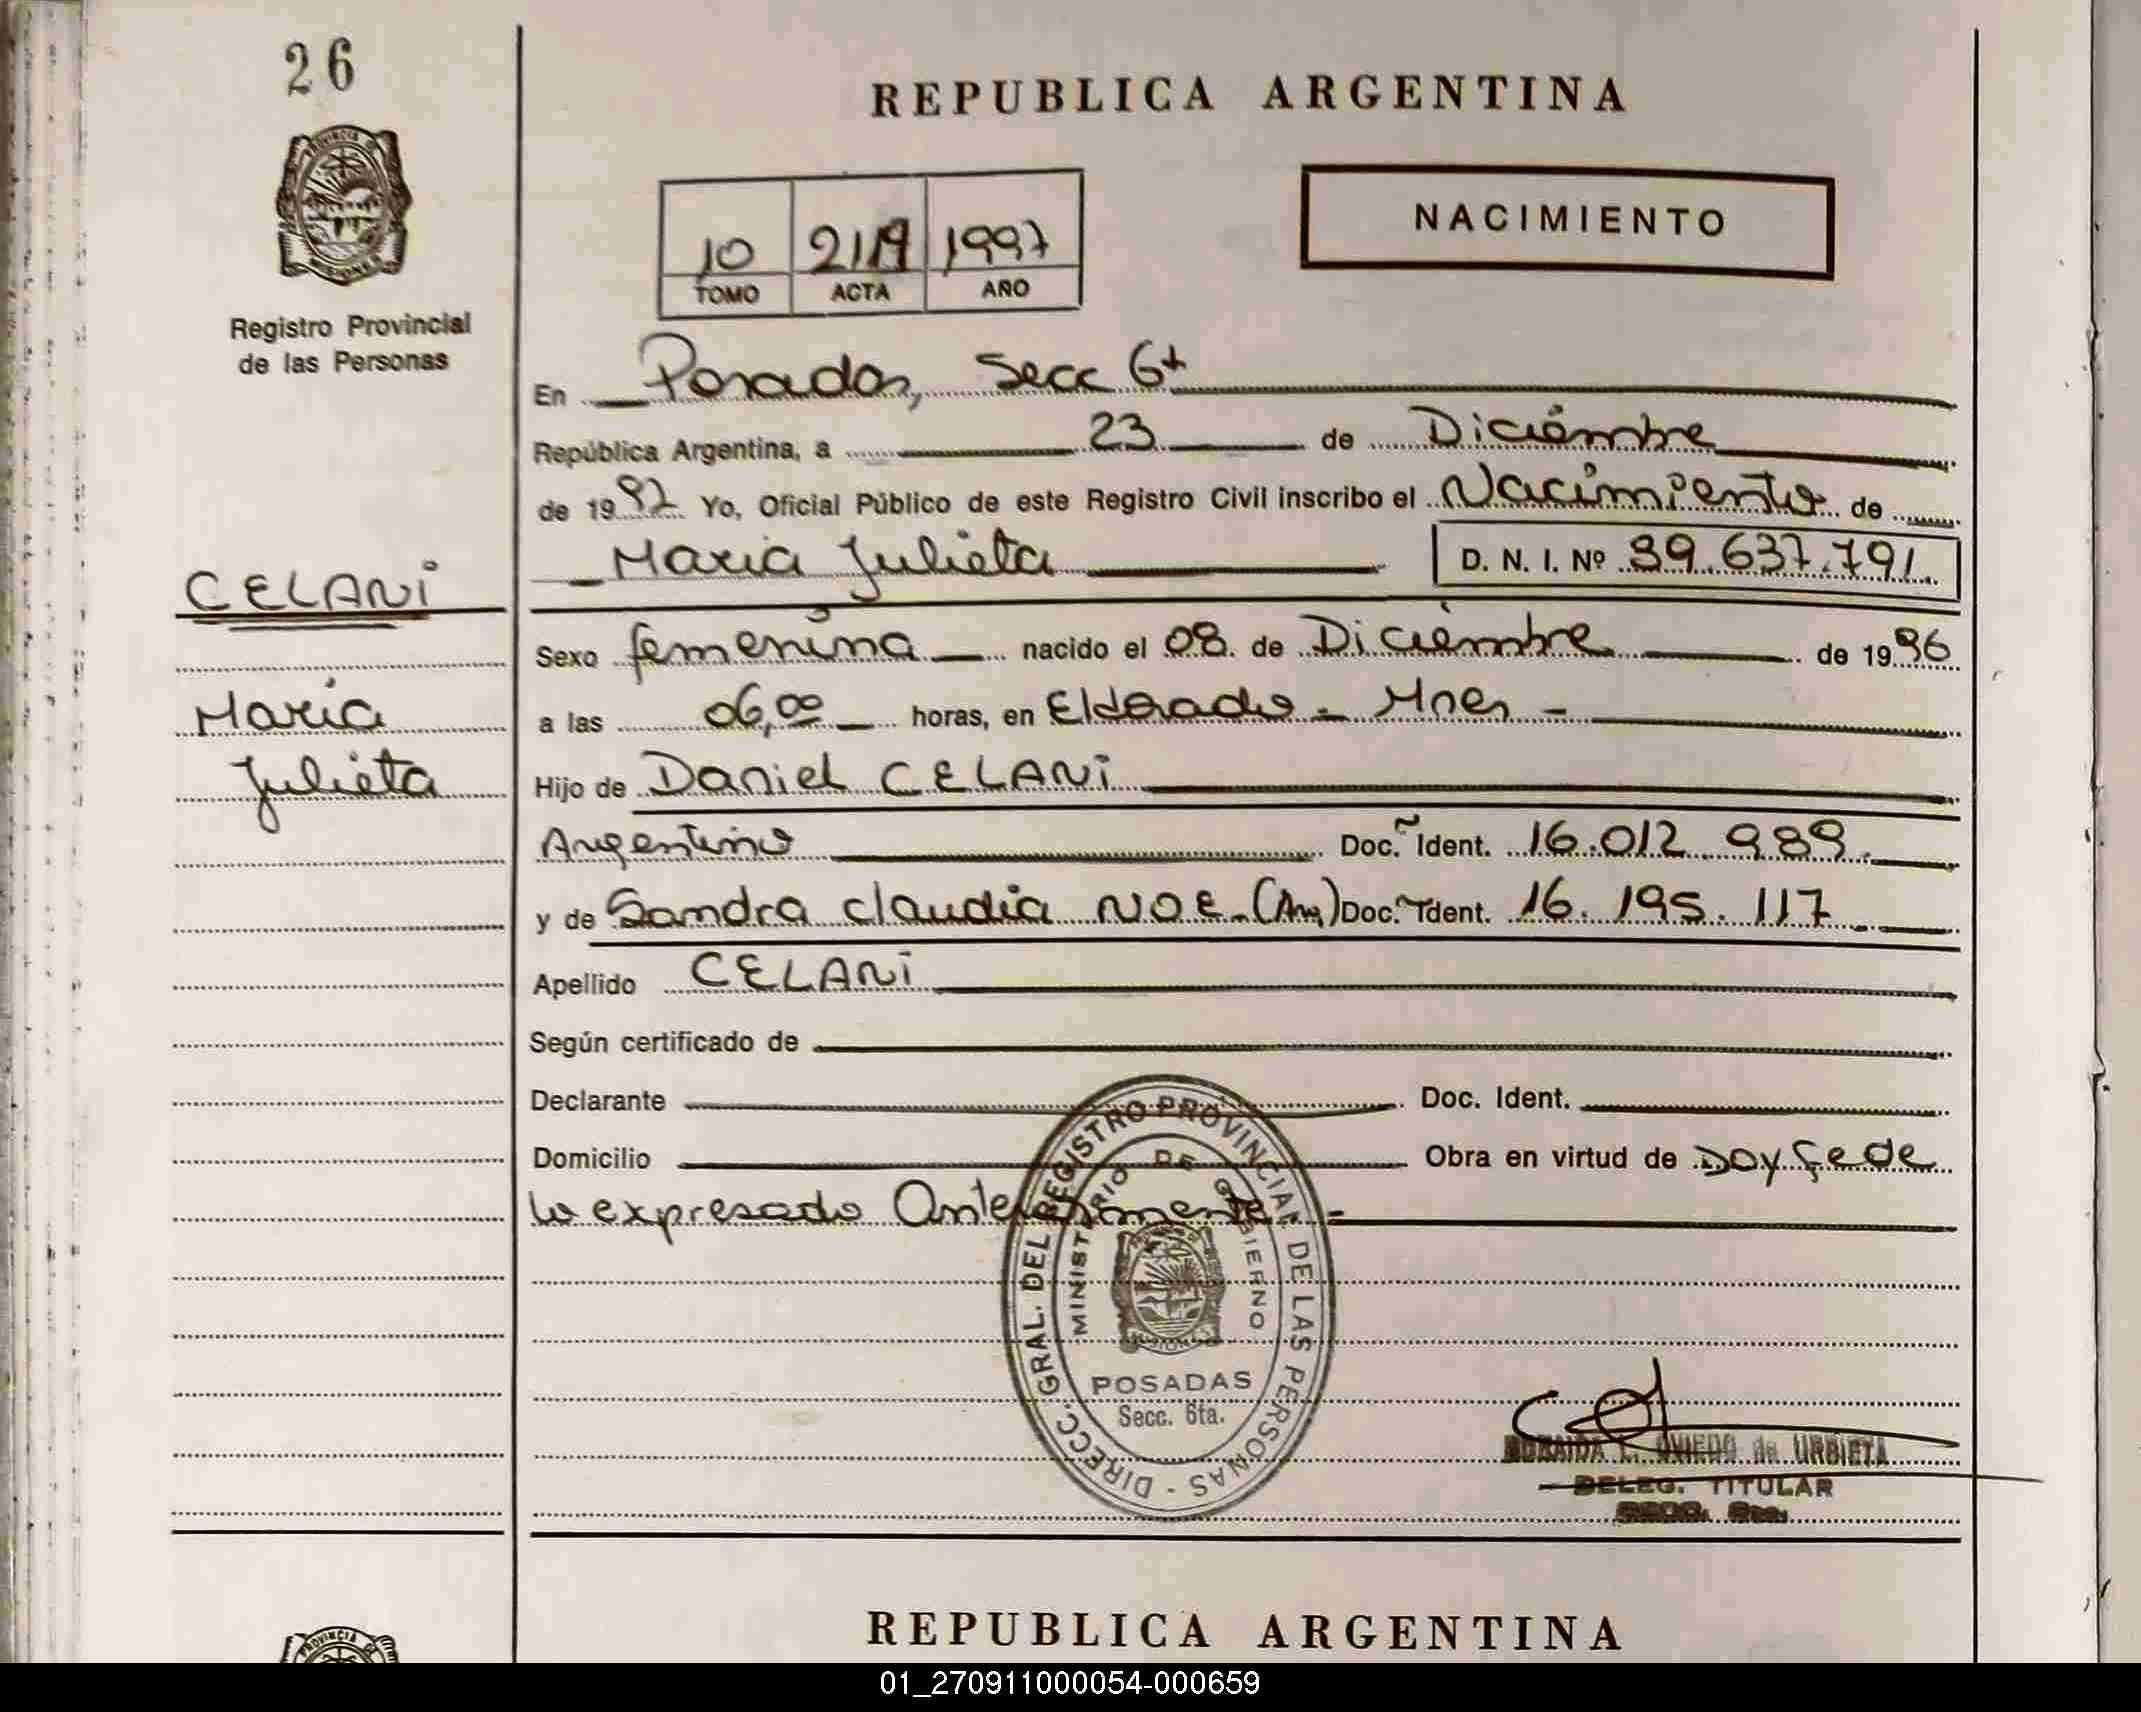 26
PROVINCIA DE
MISIONES
Registro Provincial
de las Personas
CELANI
Maria
Julieta
REPUBLICA ARGENTINA
10 2119 1997
TOMO ACTA AÑO
NACIMIENTO
En Posadas, Secc 6ta
República Argentina, a 23 de Diciembre
de 1997 Yo, Oficial Público de este Registro Civil inscribo el Nacimiento de
Maria Julieta D. N. I. Nº 39.637.791.
Sexo femenina nacido el 08 de Diciembre de 1996
a las 06,00 horas, en Eldorado - Mnes -
Hijo de Daniel CELANI
Argentino Doc. Ident. 16.012.989.
y de Sandra Claudia NOE - (Arg) Doc. Ident. 16.195.117
Apellido CELANI
Según certificado de
Declarante Doc. Ident.
Domicilio Obra en virtud de Doy fe de
lo expresado Anteriormente -
DIRECC. GRAL. DEL REGISTRO PROVINCIAL DE LAS PERSONAS -
MINISTERIO DE GOBIERNO
POSADAS
Secc. 6ta.
L. OVIEDO de URBIETA
DELEG. TITULAR
SECC. 6ta.
REPUBLICA ARGENTINA
PROVINCIA DE
01_270911000054-000659